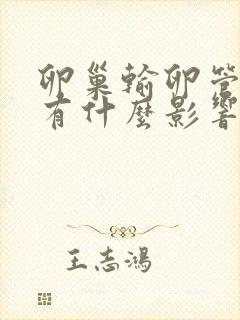 卵巢輸卵管
有什麼影響
王志鴻